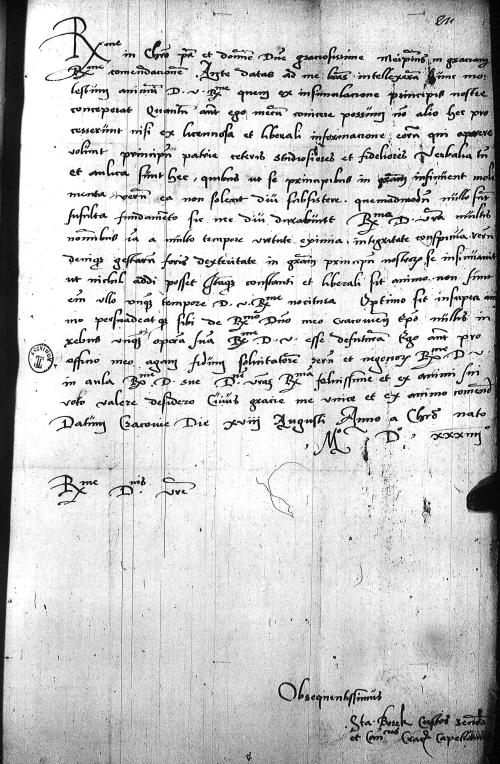 R̄me in Chro pr̄ et domine Dne graciosissime Meipsum in graciam
R̄me comendacionem. Ante datas ad me lras intellexeram hunc mo
lestum animum D. v. R̄me quem ex insimulacione principis nostri
conceperat Quantum aut ego mecum conicere possum no alio hec pro
cesserunt nisi ex licenciosa et liberali informacione eorum qui apparere
volunt principum patrie ceteris studiosiores et fideliores Verbalia tn
et aulica sunt hec, quibus ut se principibus in graciam insinuent moli
menta verum ea non solent diu subsistere. quemadmodum nullo sint
fulsita fundamento sic nec diu durabunt R̄ma D. vra multis
nominibus ia a multo tempore virtute eximia, integritate conspicua, rerum
deniq gestarum foris dexteritate in gram principum nostrorum se insinuavit
ut nichil addi posset Itaque constanti et liberali sit animo. non sunt
ein ullo unq tempore D. v. R̄me nocitura Optimo sit insuper ani
mo persuadeatq sibi de R̄mo Dno meo Cracovien Epo nullis in
rebus unq opera sua R̄me D. v. esse defuturum Ego aut pro
officio meo agam fidum solicitatorem rerum et negocior R̄me D. v.
in aula R̄me D. sue Dne vram R̄mam felicissime et ex animi sui
voto valere desidero Cuius gracie me unice et ex animo comendo
Datum Cracovie Die xviii Augusti Anno a Chro nato
Mo Do xxxiiiio
R̄me Dnis vre
Obsequentissimus
Sta. Borek Custos
et Can Crac Capellanus